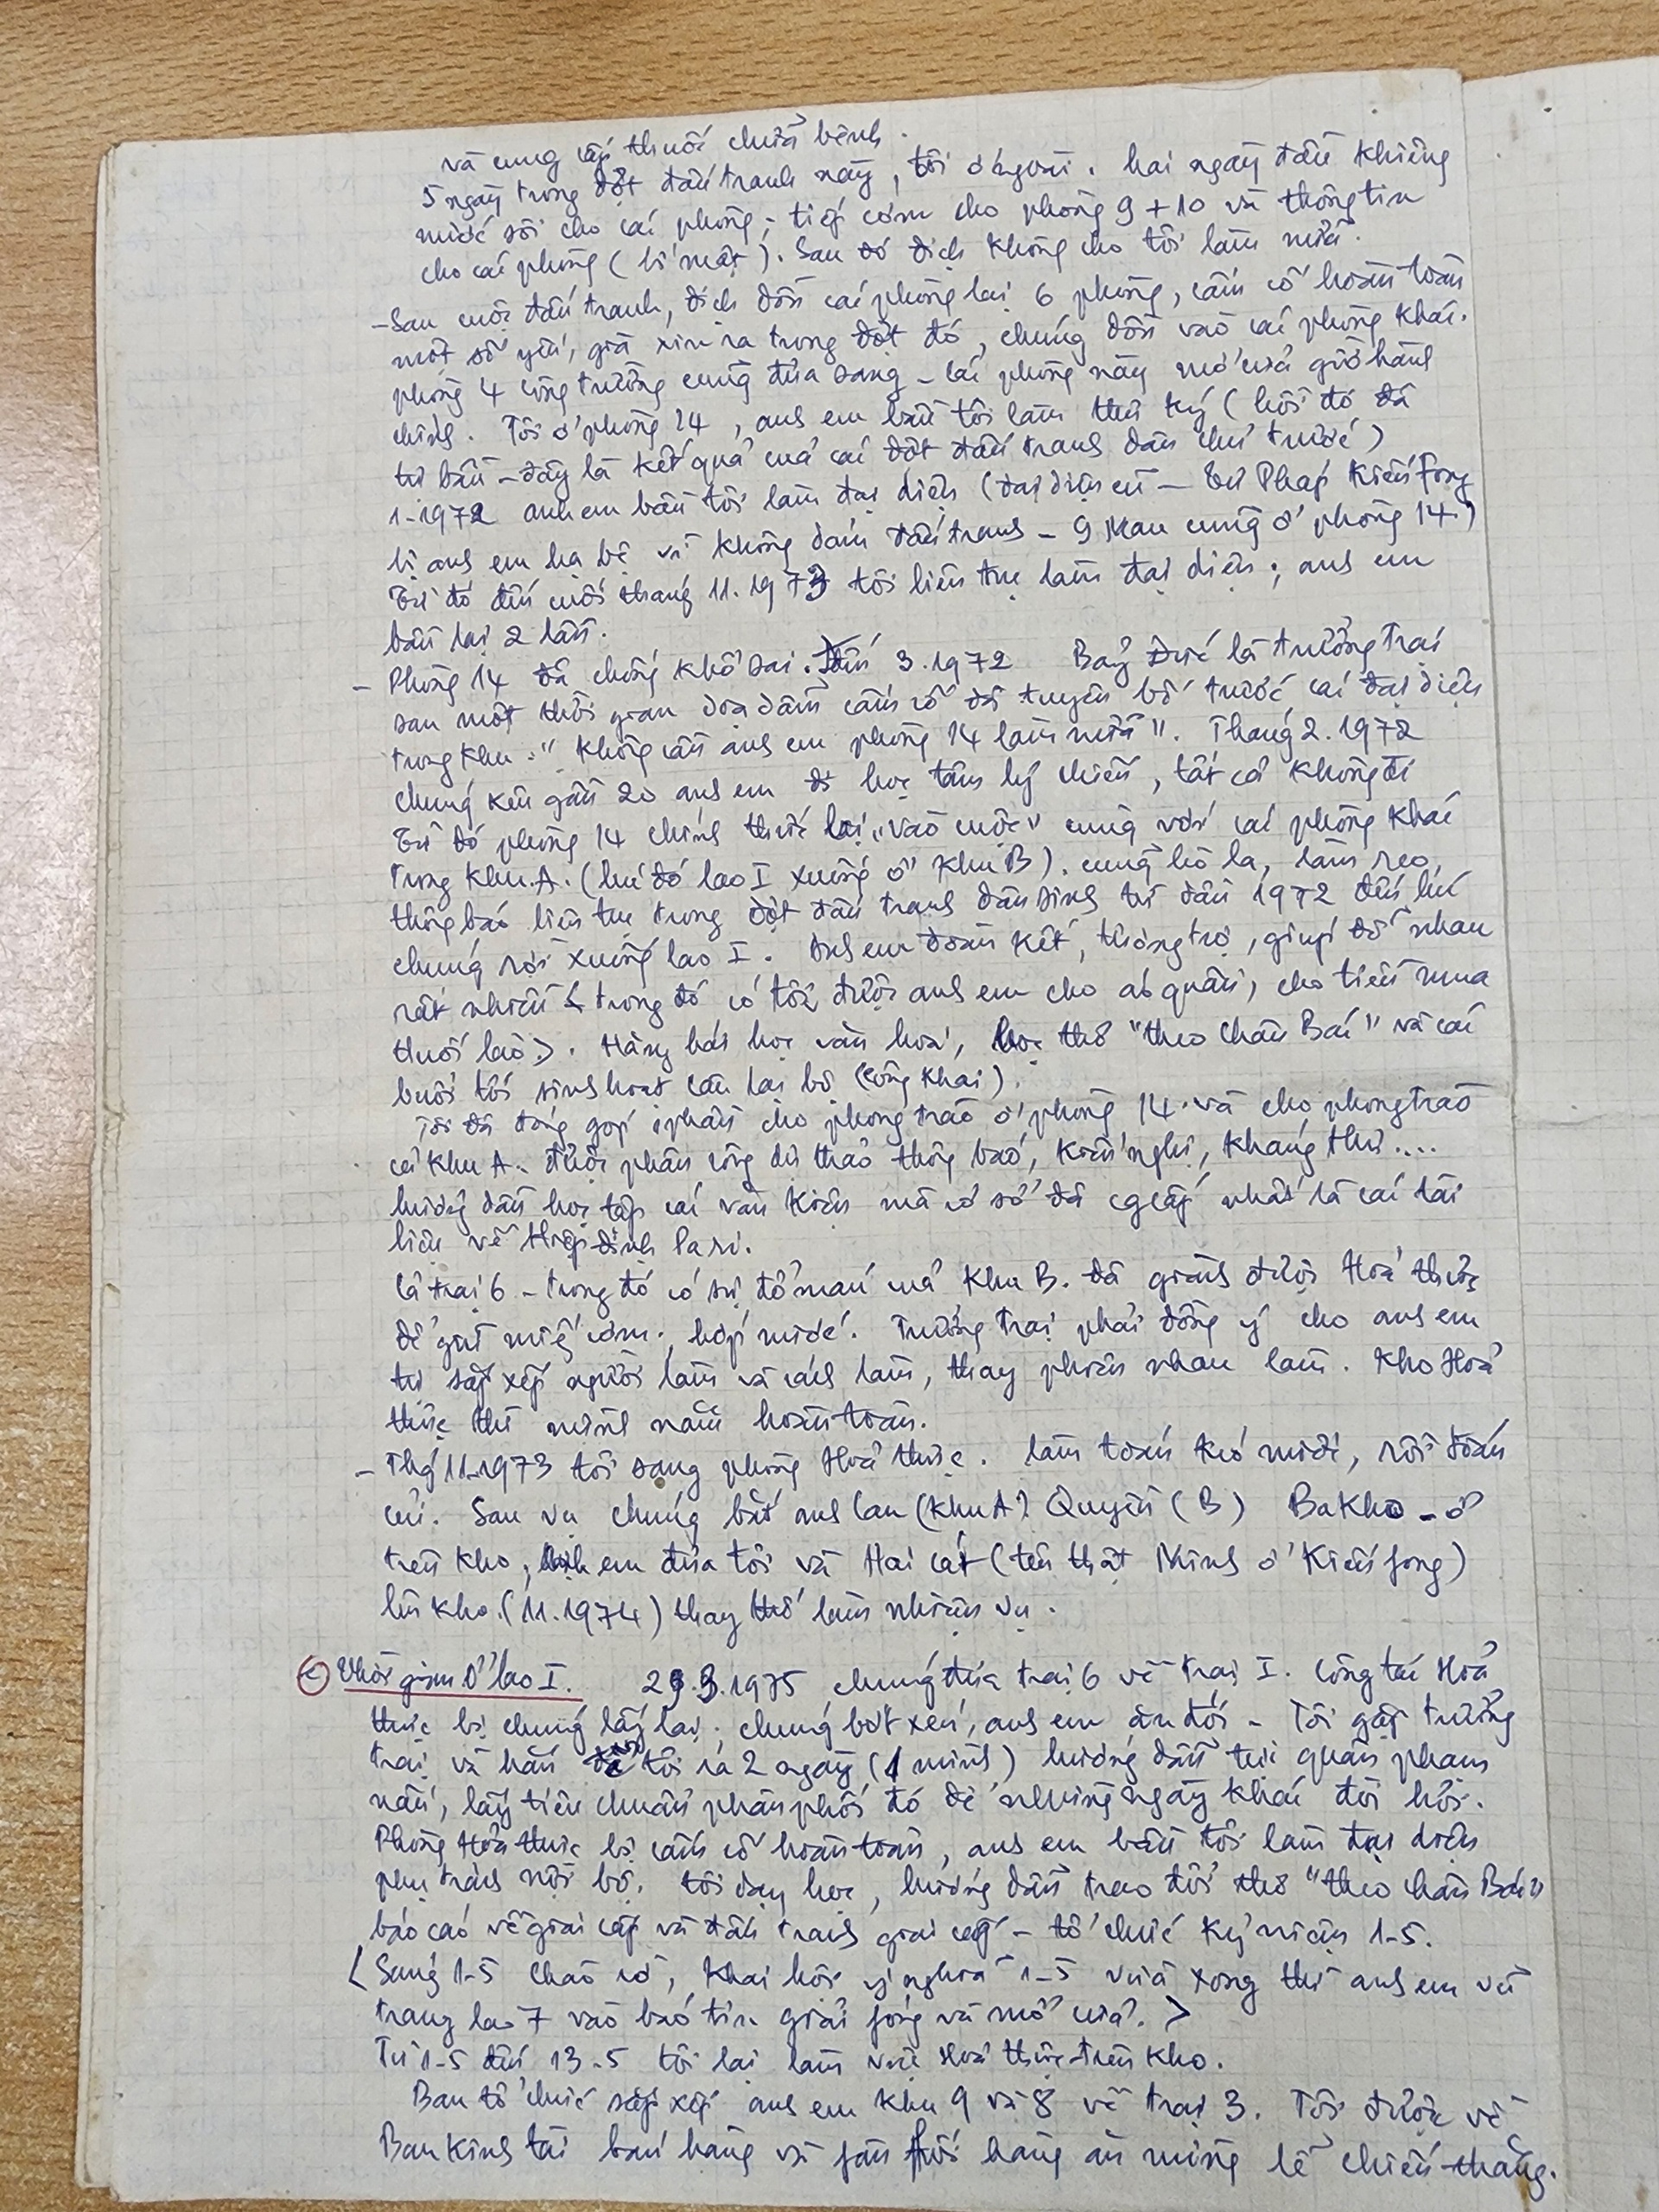 và cung cấp thuốc chữa bệnh.
5 ngày trong đợt đấu tranh này, tôi ở ngoài. hai ngày đầu khiêng
nước sôi cho các phòng; tiếp cơm cho phòng 9 + 10 và thông tin
cho các phòng (bí mật). Sau đó địch không cho tôi làm nữa.
- Sau cuộc đấu tranh, địch dồn các phòng lại 6 phòng, cấm cố hoàn toàn
một số yếu, già xin ra trong đợt đó, chúng dồn vào các phòng khác.
phòng 4 công trường cũng đưa sang - các phòng này mở cửa giờ hành
chính. Tôi ở phòng 14, anh em bầu tôi làm thư ký (hồi đó đã
tự bầu - đây là kết quả của các đợt đấu tranh dân chủ trước)
1-1972 anh em bầu tôi làm đại diện (đại diện cũ - Tư Pháp Kiến Fong
bị anh em hạ bệ vì không dám đấu tranh - 9 Mau cũng ở phòng 14.)
Từ đó đến cuối tháng 11.1973 tôi liên tục làm đại diện; anh em
bầu lại 2 lần.
- Phòng 14 đã chống khổ sai. đến 3.1972 Bảy Đức là trưởng trại
sau một thời gian dọa dẫm cấm cố đã tuyên bố trước các đại diện
trong khu: "không cần anh em phòng 14 làm nữa". Tháng 2.1972
chúng kêu gần 20 anh em đi học tâm lý chiến, tất cả không đi
Từ đó phòng 14 chính thức lại "vào cuộc" cùng với các phòng khác
trong khu A. (lúc đó lao I xuống ở khu B). cùng hò la, làm reo,
thông báo liên tục trong đợt đấu tranh dân sinh từ đầu 1972 đến lúc
chúng rời xuống lao I. Anh em đoàn kết, tương trợ, giúp đỡ nhau
rất nhiều < trong đó có tôi được anh em cho áo quần, cho tiền mua
thuốc lào >. Hăng hái học văn hoá, học thơ "theo chân Bác" và các
buổi tối sinh hoạt câu lạc bộ (công khai).
Tôi đã đóng góp 1 phần cho phong trào ở phòng 14 và cho phong trào
cả khu A. được phân công dự thảo thông báo, kiến nghị, kháng thư....
hướng dẫn học tập các văn kiện mà cơ sở đã cgcấp nhất là các tài
liệu về Hiệp định Pari.
Cả trại 6 - trong đó có sự đổ máu của khu B. đã giành được Hoả thực
để giữ miếng cơm, hớp nước. Trưởng trại phải đồng ý cho anh em
tự sắp xếp người làm và cách làm, thay phiên nhau làm. Kho Hoả
thực thì mình nắm hoàn toàn.
- Thg 11.1973 tôi sang phòng Hoả thực. làm toán kéo nước, rồi toán
củi. Sau vụ chúng bắt anh Can (khu A) Quyền (B) Ba Kho - ở
trên kho, anh em đưa tôi và Hai Cát (tên thật Minh ở Kiến fong)
lên kho. (11.1974) thay thế làm nhiệm vụ.
c) Thời gian ở lao I. 29.3.1975 chúng đưa trại 6 về trại I. Công tác Hoả
thực bị chúng lấy lại; chúng bớt xén, anh em ăn đói - Tôi gặp trưởng
trại và hắn để tôi ra 2 ngày (1 mình) hướng dẫn tụi quân phạm
nấu, lấy tiêu chuẩn phân phối đó để những ngày khác đòi hỏi.
Phòng Hoả thực bị cấm cố hoàn toàn, anh em bầu tôi làm đại diện
phụ trách nội bộ. tôi dạy học, hướng dẫn trao đổi thơ "theo chân Bác"
báo cáo về giai cấp và đấu tranh giai cấp - tổ chức kỷ niệm 1-5.
< Sáng 1-5 chào cờ, khai hội ý nghĩa 1-5 vừa xong thì anh em vũ
trang lao 7 vào báo tin giải fóng và mở cửa. >
Từ 1-5 đến 13-5 tôi lại làm việc Hoả thực trên kho.
Ban tổ chức sắp xếp anh em khu 9 và 8 về trại 3. Tôi được về
Ban Kinh tài bán hàng và fân fối hàng ăn mừng lễ chiến thắng.